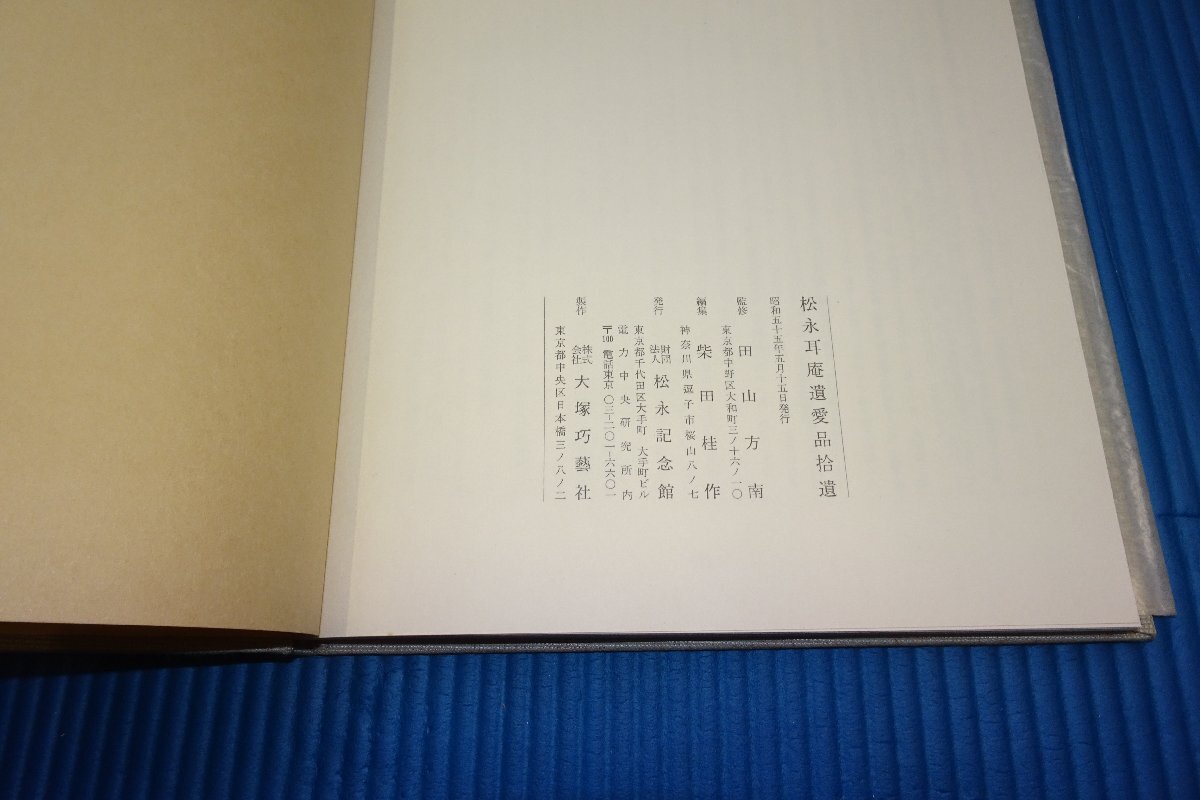 松永耳庵遺愛品拾遺
昭和五十五年五月十五日発行
監修 田山方南
東京都中野区大和町三ノ十六ノ一〇
編集 柴田桂作
神奈川県逗子市桜山八ノ七
発行 財団法人 松永記念館
東京都千代田区大手町 大手町ビル
電力中央研究所内
〒100 電話東京 〇三―二〇一―六六〇一
製作 株式会社 大塚巧藝社
東京都中央区日本橋三ノ八ノ二